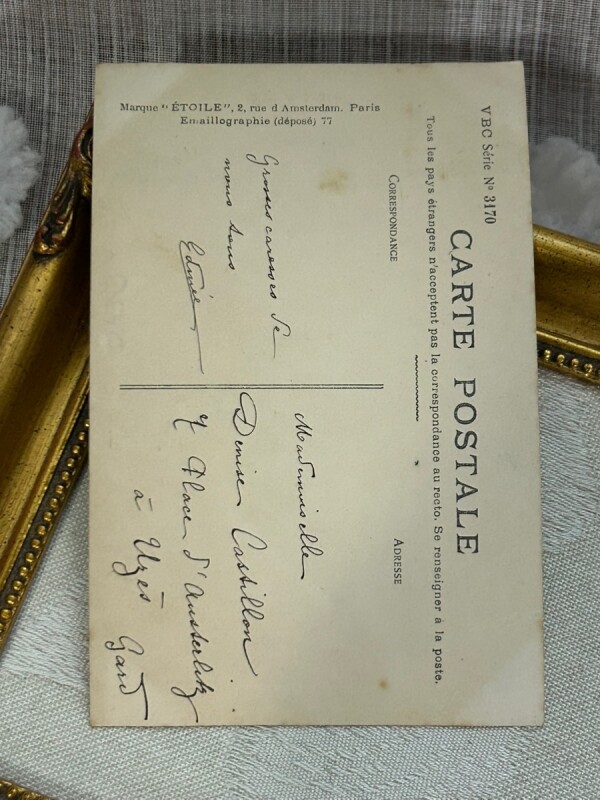 VBC Série Nº 3170
CARTE POSTALE
Tous les pays étrangers n'acceptent pas la correspondance au recto. Se renseigner à la poste.
CORRESPONDANCE
ADRESSE
Grosses caresses de
nous tous
Edmée
Mademoiselle
Denise Castillon
7 Place d'Austerlitz
à Uzès
Gard
Marque "ÉTOILE", 2, rue d Amsterdam. Paris
Emaillographie (déposé) 77